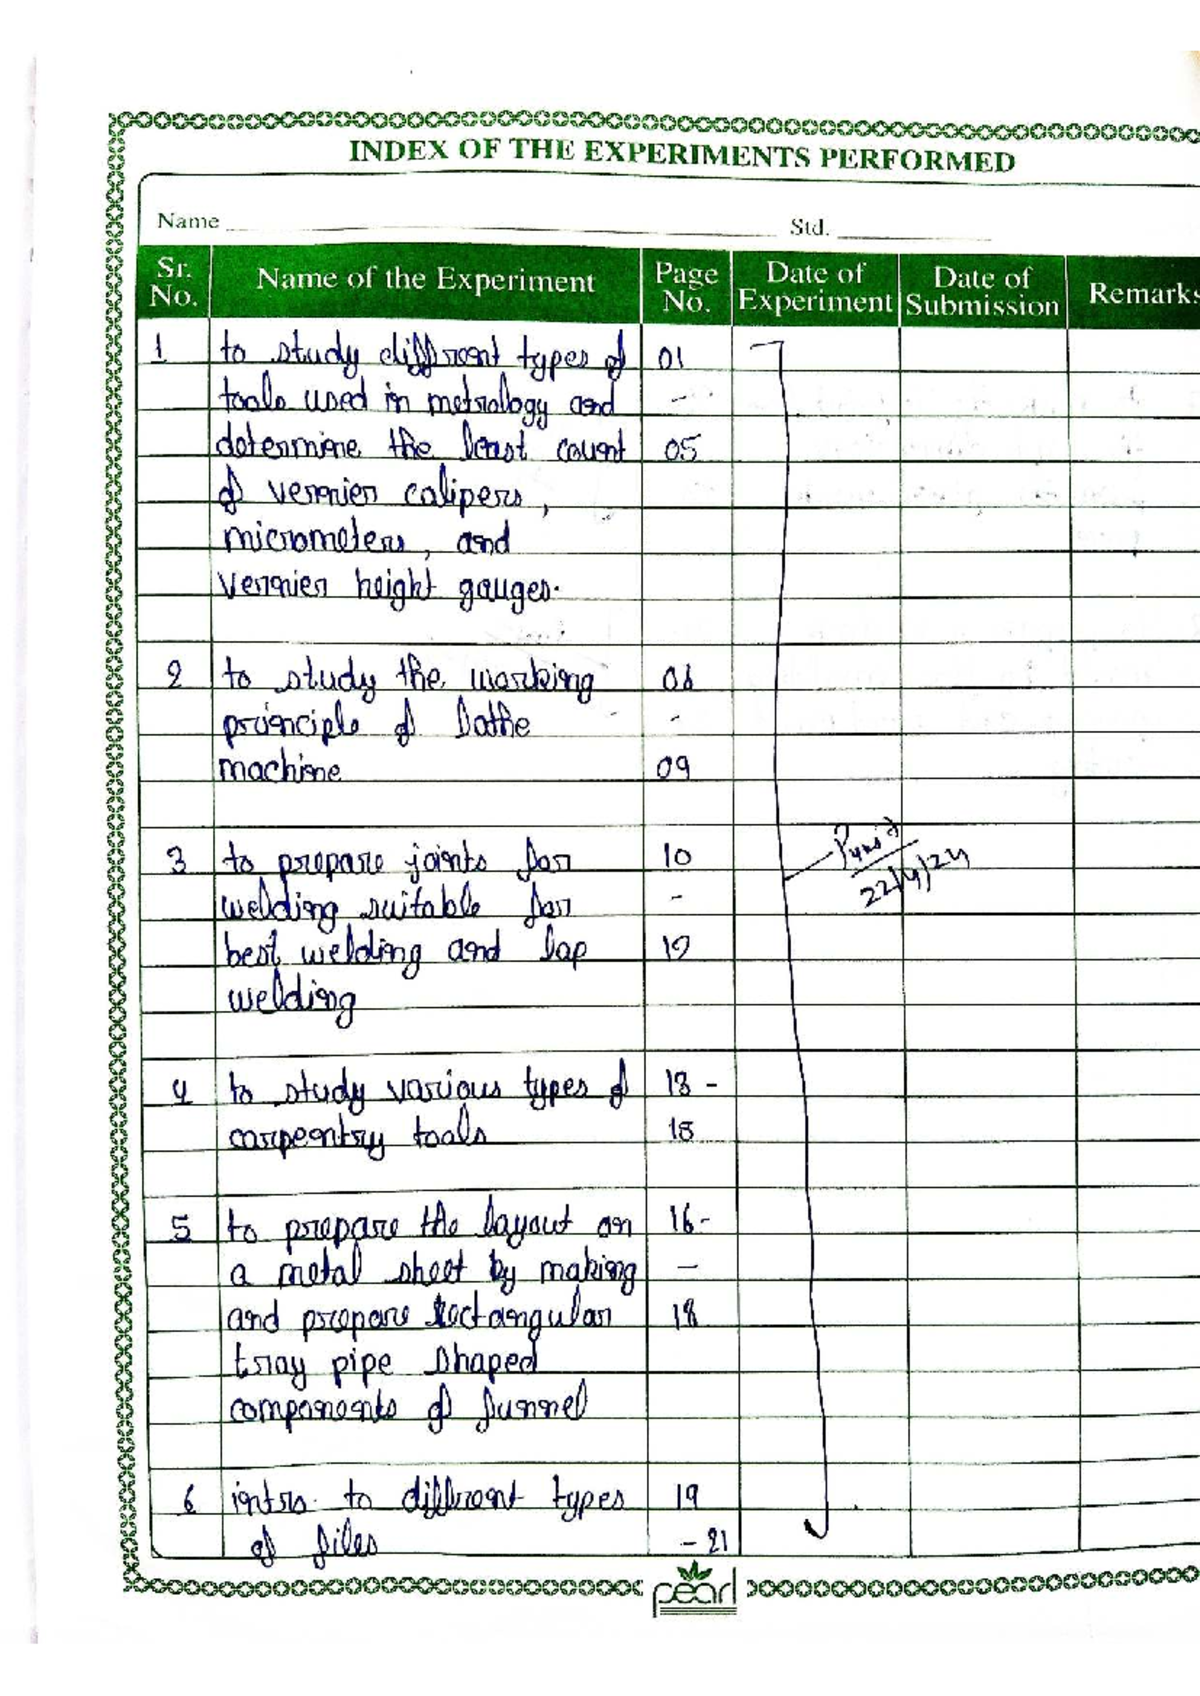 INDEX OF THE EXPERIMENTS PERFORMED
Name Std.
Sr. No. Name of the Experiment Page No. Date of Experiment Date of Submission Remarks
1 to study different types of 01
tools used in metrology and -
determine the least count 05
of vernier calipers,
micrometers, and
vernier height gauges.
2 to study the working 06
principle of lathe -
machine 09
3 to prepare joints for 10
welding suitable for -
best welding and lap 12
welding
22/4/24
4 to study various types of 13 -
carpentry tools 15
5 to prepare the layout on 16-
a metal sheet by making -
and prepare rectangular 18
tray pipe shaped
components of funnel
6 intro. to different types 19
of files - 21
pearl